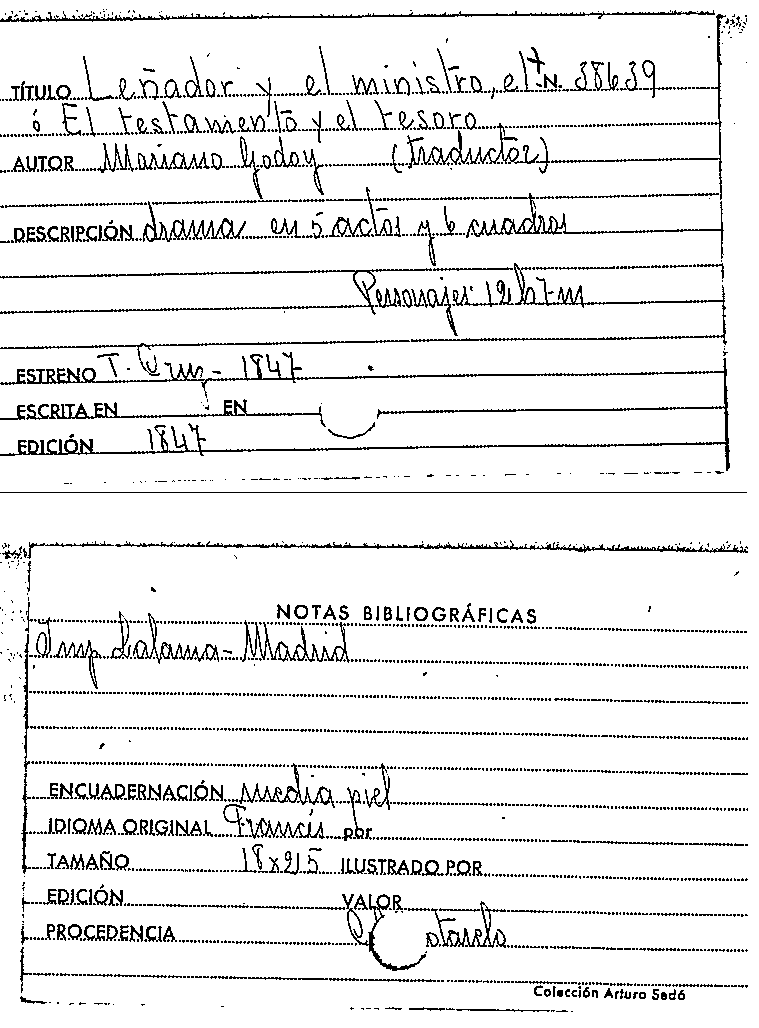 TÍTULO Leñador y el ministro, el + N. 38639
ó El testamento y el tesoro
AUTOR Mariano Godoy (traductor)
DESCRIPCIÓN drama en 5 actos y 6 cuadros
Personajes: 12 h 7 m
ESTRENO T. Cruz - 1847
ESCRITA EN EN
EDICIÓN 1847
NOTAS BIBLIOGRÁFICAS
Imp Lalama - Madrid
ENCUADERNACIÓN media piel
IDIOMA ORIGINAL Francés por
TAMAÑO 18 x 215 ILUSTRADO POR
EDICIÓN VALOR
PROCEDENCIA Cotarelo
Colección Arturo Sedó